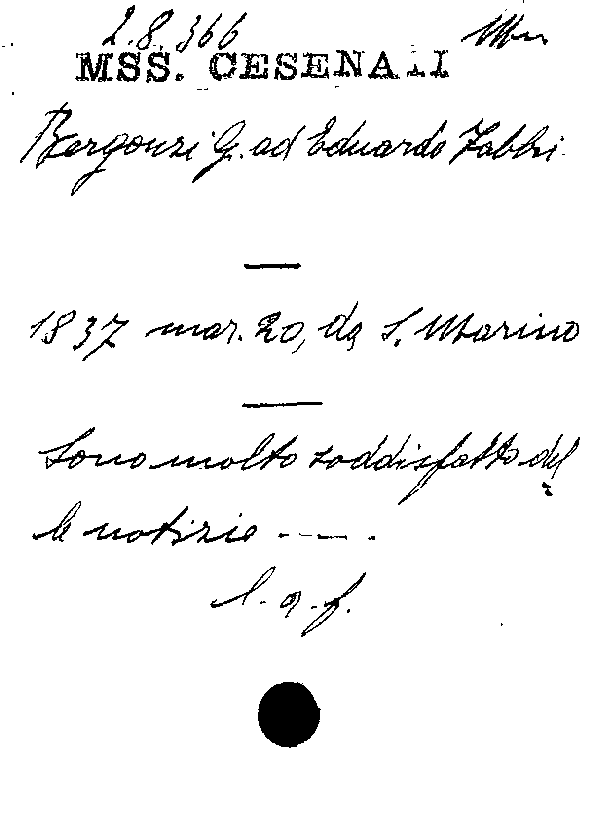 2.8.366
MSS. CESENATI
Bergonzi G. ad Eduardo Fabbri
1837 mar. 20, da S. Marino
Sono molto soddisfatto del
le notizie - - - - .
l. a. f.